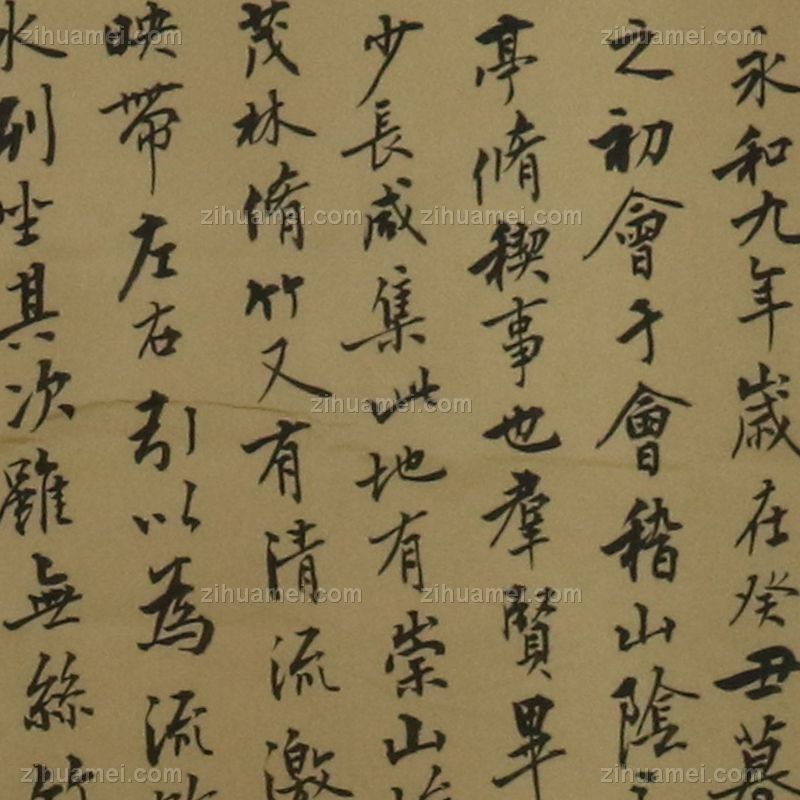 永和九年歲在癸丑暮
之初會于會稽山陰
亭脩稧事也羣賢畢
少長咸集此地有崇山
茂林脩竹又有清流激
映帶左右引以為流
水列坐其次雖無絲竹
zihuamei.com zihuamei.com zihuamei.com zihuamei.com
zihuamei.com zihuamei.com zihuamei.com
zihuamei.com zihuamei.com zihuamei.com
zihuamei.com zihuamei.com zihuamei.com
zihuamei.com zihuamei.com zihuamei.com zihuamei.com